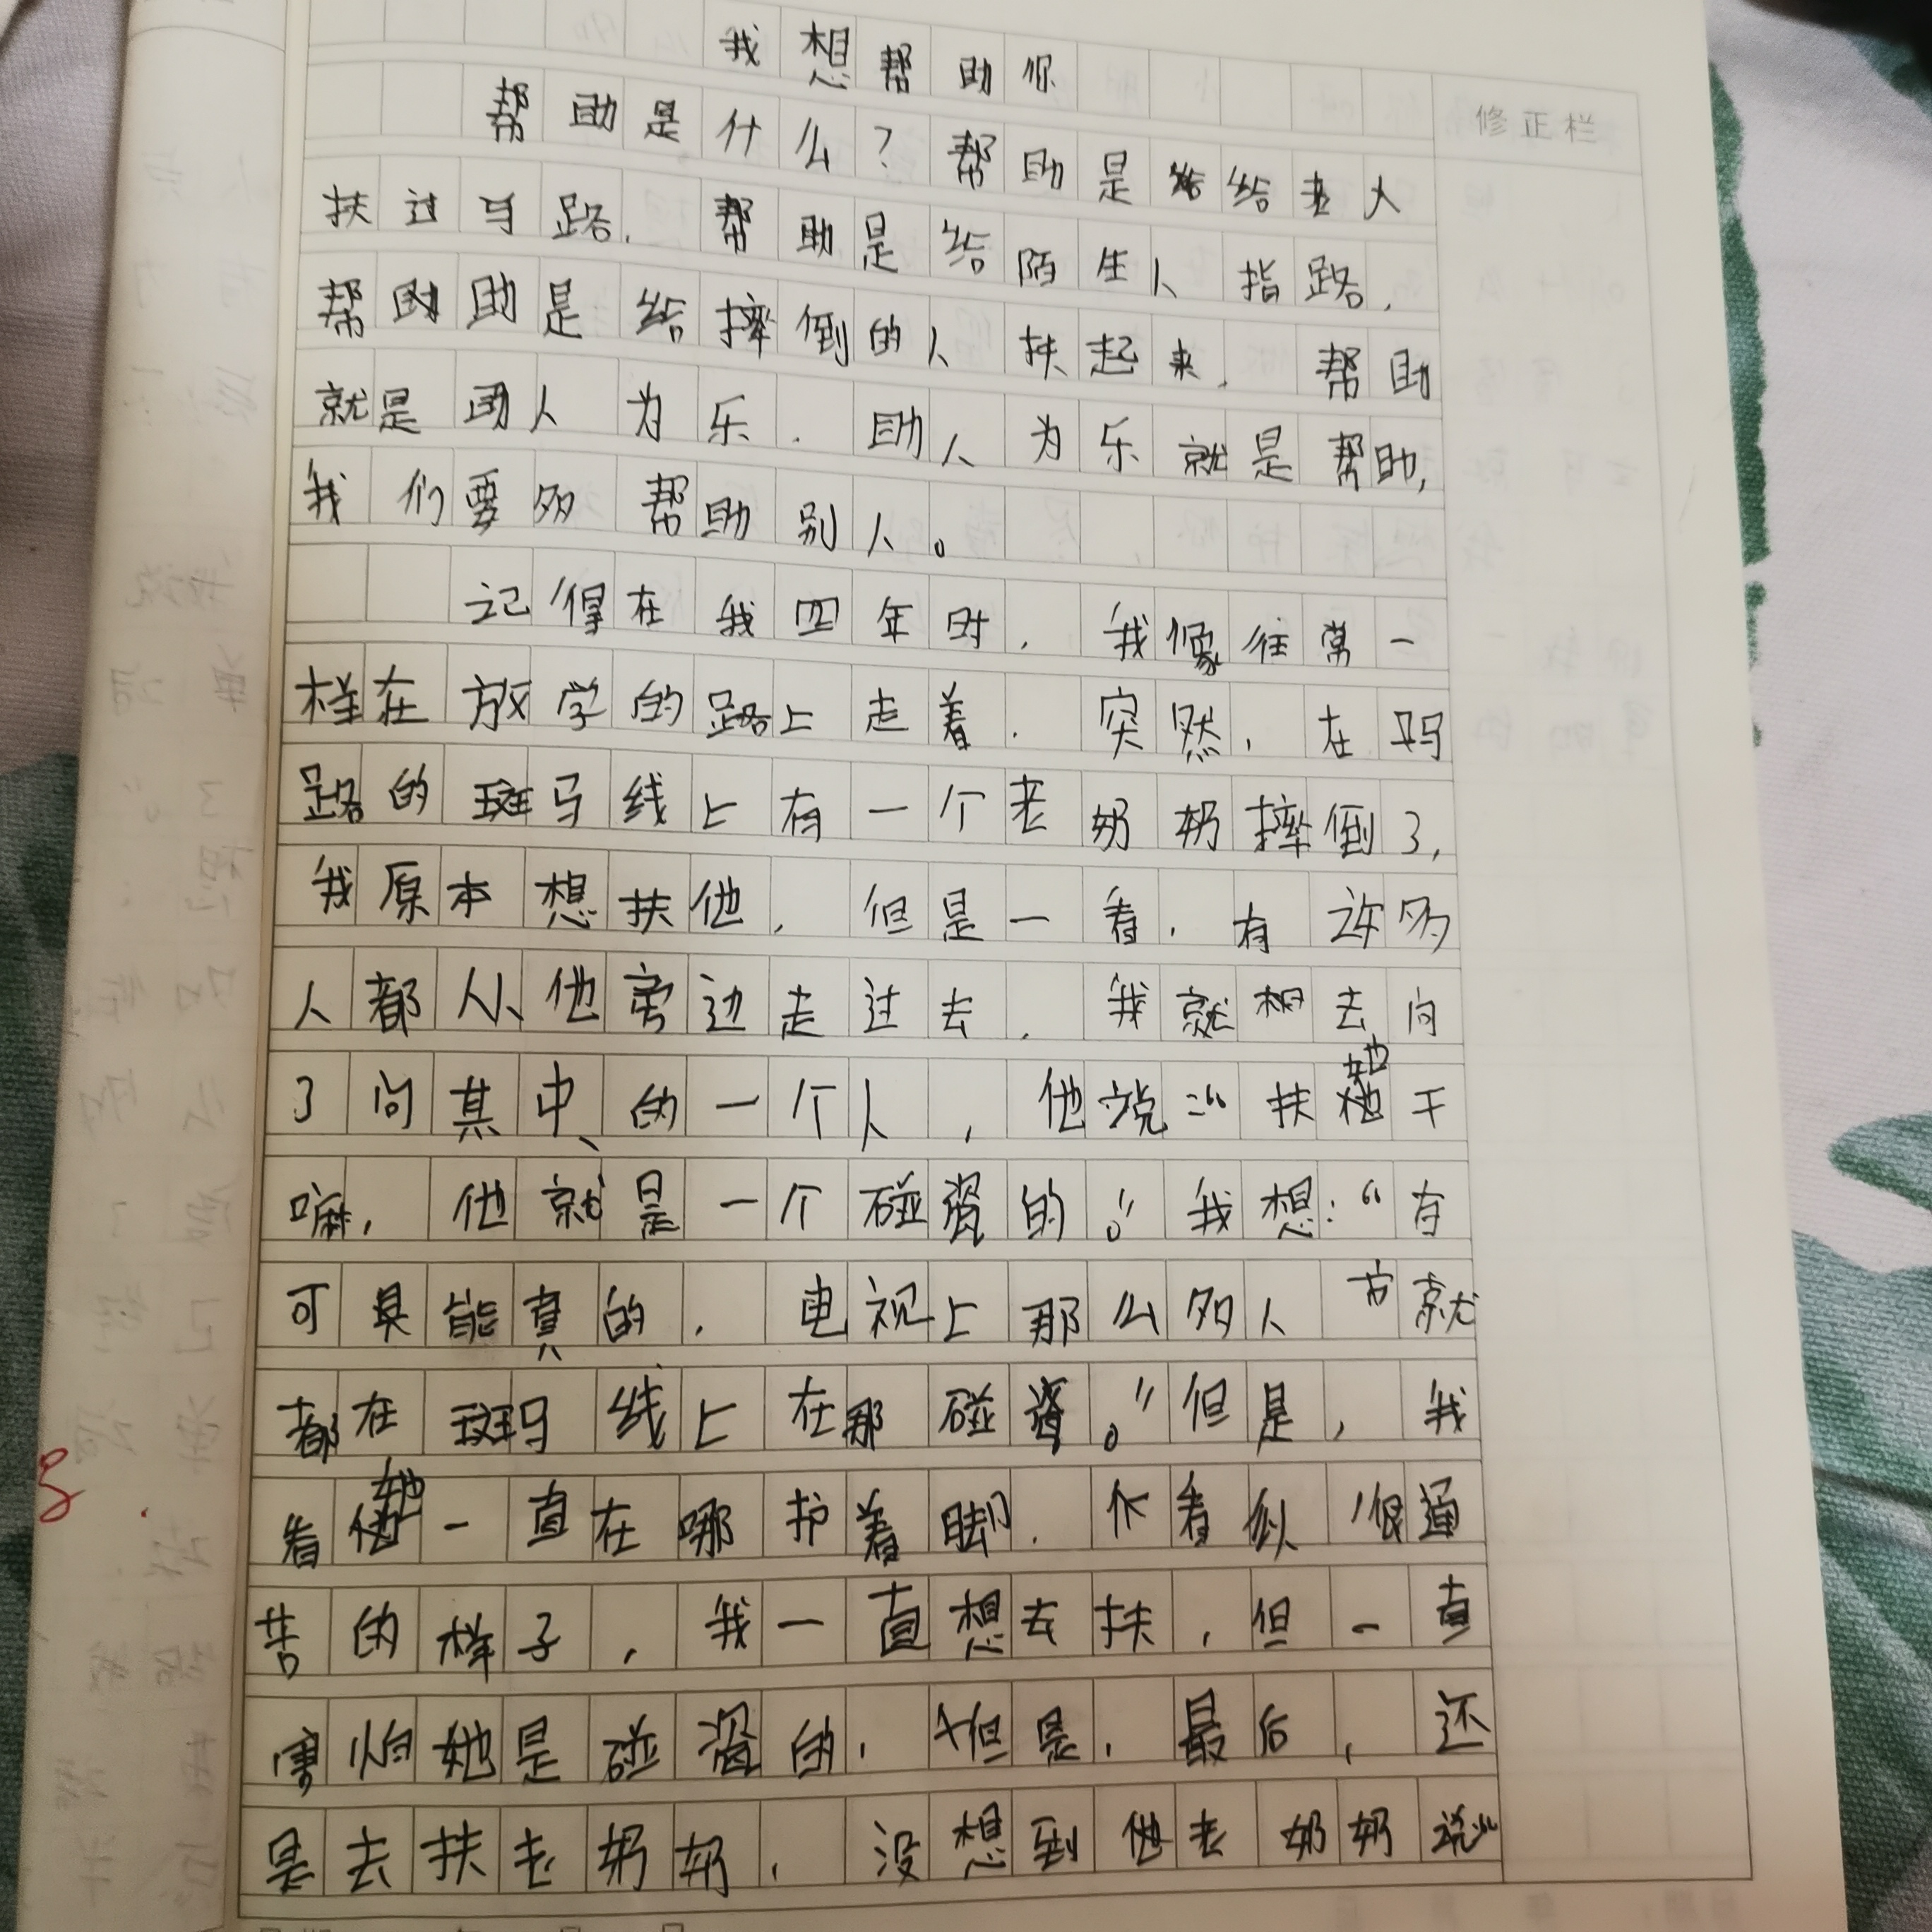 我想帮助你
修正栏
帮助是什么?帮助是给给老人
扶过马路,帮助是给陌生人指路,
帮助助是给摔倒的人扶起来,帮助
就是助人为乐.助人为乐就是帮助,
我们要多帮助别人。
记得在我四年时,我像往常一
样在放学的路上走着.突然,在吗
路的斑马线上有一个老奶奶摔倒了,
我原本想扶他,但是一看,有许多
人都从他旁边走过去.我就想去问
了问其中的一个人,他说:“扶她干
嘛,他就是一个碰瓷的。”我想:“有
可具能真的,电视上那么多人就
都在斑马线上在那碰瓷。”但是,我
看她一直在哪护着脚.看似很通
苦的样子,我一直想去扶,但一直
害怕她是碰瓷的,但是,最后,还
是去扶老奶奶,没想到他老奶奶说:“